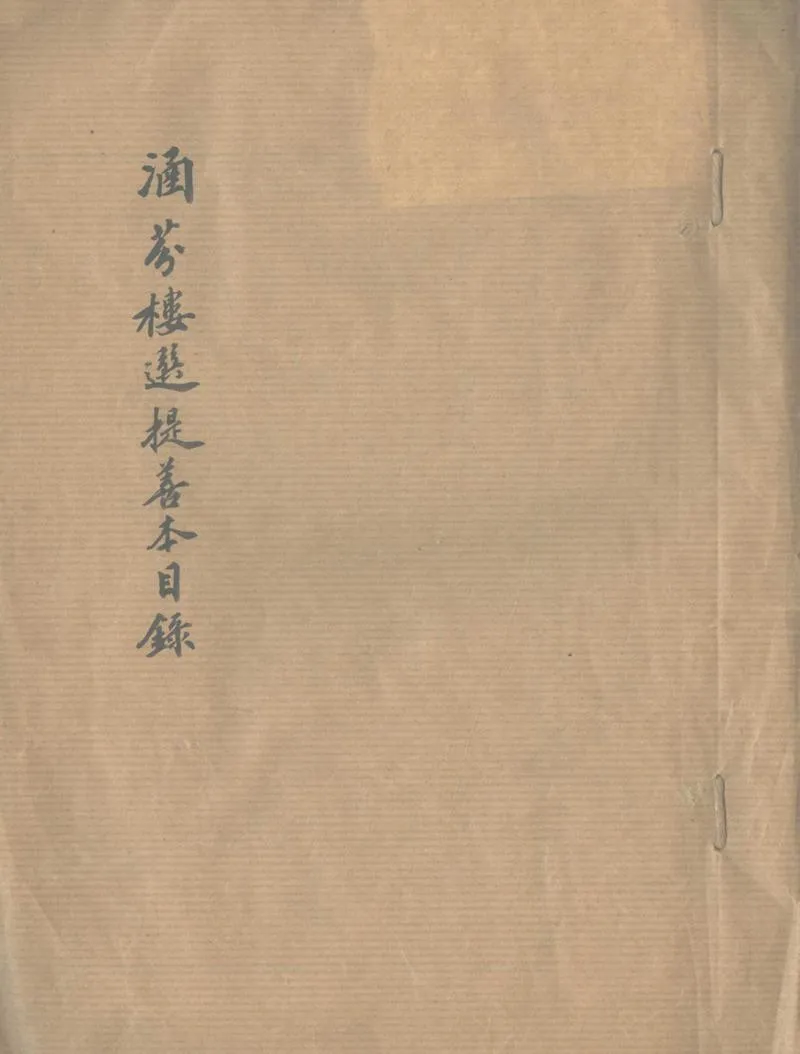 涵芬樓選提善本目錄